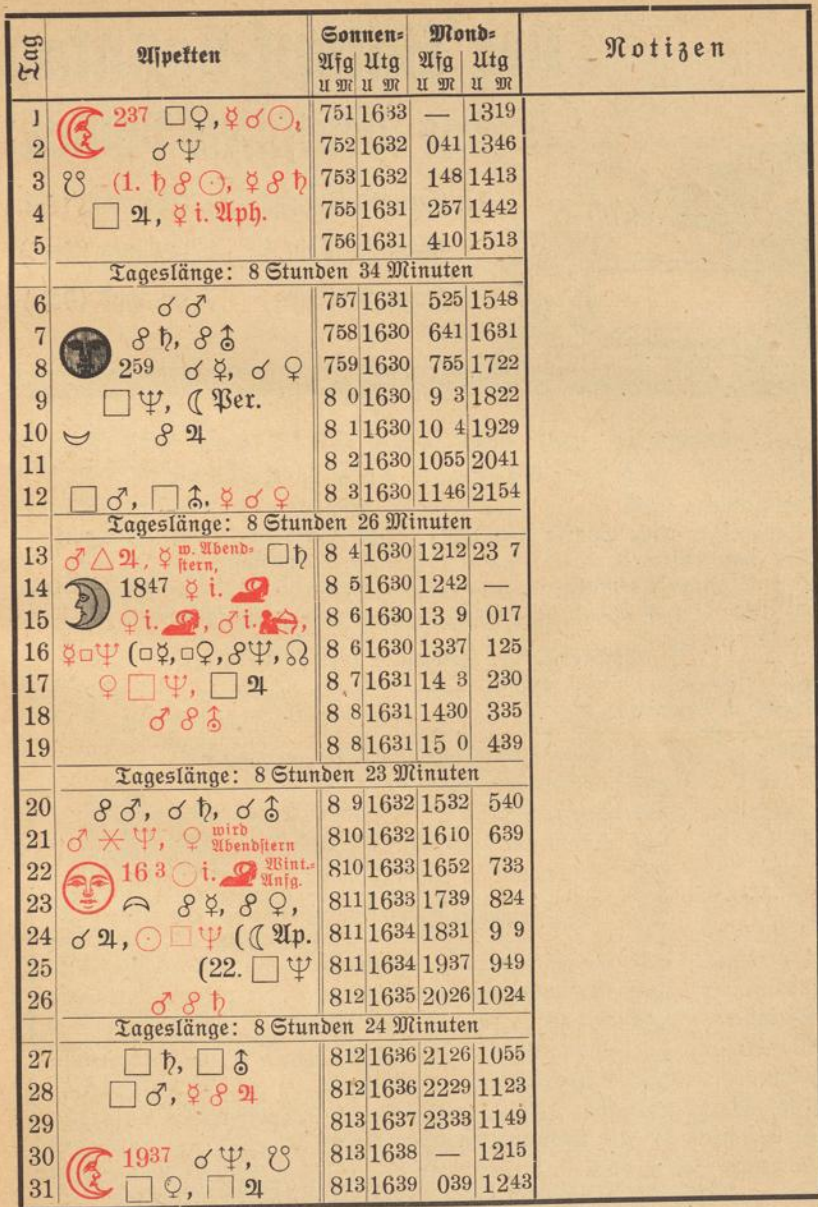 Tag Aspekten Sonnen= Mond= Notizen
Afg Utg Afg Utg
U M U M U M U M
1 237 □♀, ☿☌☉, 751 1633 — 1319
2 ☌♆ 752 1632 041 1346
3 ☋ (1. ♄☍☉, ☿☍♄ 753 1632 148 1413
4 □♃, ☿ i. Aph. 755 1631 257 1442
5 756 1631 410 1513
Tageslänge: 8 Stunden 34 Minuten
6 ☌♂ 757 1631 525 1548
7 ☍♄, ☍⛢ 758 1630 641 1631
8 259 ☌☿, ☌♀ 759 1630 755 1722
9 □♆, ☾ Per. 8 0 1630 9 3 1822
10 ☍♃ 8 1 1630 10 4 1929
11 8 2 1630 1055 2041
12 □♂, □⛢, ☿☌♀ 8 3 1630 1146 2154
Tageslänge: 8 Stunden 26 Minuten
13 ♂△♃, ☿ w. Abend= stern, □♄ 8 4 1630 1212 23 7
14 1847 ☿ i. ♑ 8 5 1630 1242 —
15 ♀ i. ♑, ♂ i. ♐, 8 6 1630 13 9 017
16 ☿□♆ (□☿, □♀, ☍♆, ☊ 8 6 1630 1337 125
17 ♀□♆, □♃ 8 7 1631 14 3 230
18 ♂☍⛢ 8 8 1631 1430 335
19 8 8 1631 15 0 439
Tageslänge: 8 Stunden 23 Minuten
20 ☍♂, ☌♄, ☌⛢ 8 9 1632 1532 540
21 ♂⚹♆, ♀ wird Abendstern 810 1632 1610 639
22 16 3 ☉ i. ♑ Wint.= Anfg. 810 1633 1652 733
23 ☍☿, ☍♀, 811 1633 1739 824
24 ☌♃, ☉□♆ (☾ Ap. 811 1634 1831 9 9
25 (22. □♆ 811 1634 1937 949
26 ♂☍♄ 812 1635 2026 1024
Tageslänge: 8 Stunden 24 Minuten
27 □♄, □⛢ 812 1636 2126 1055
28 □♂, ☿☍♃ 812 1636 2229 1123
29 813 1637 2333 1149
30 1937 ☌♆, ☋ 813 1638 — 1215
31 □♀, □♃ 813 1639 039 1243